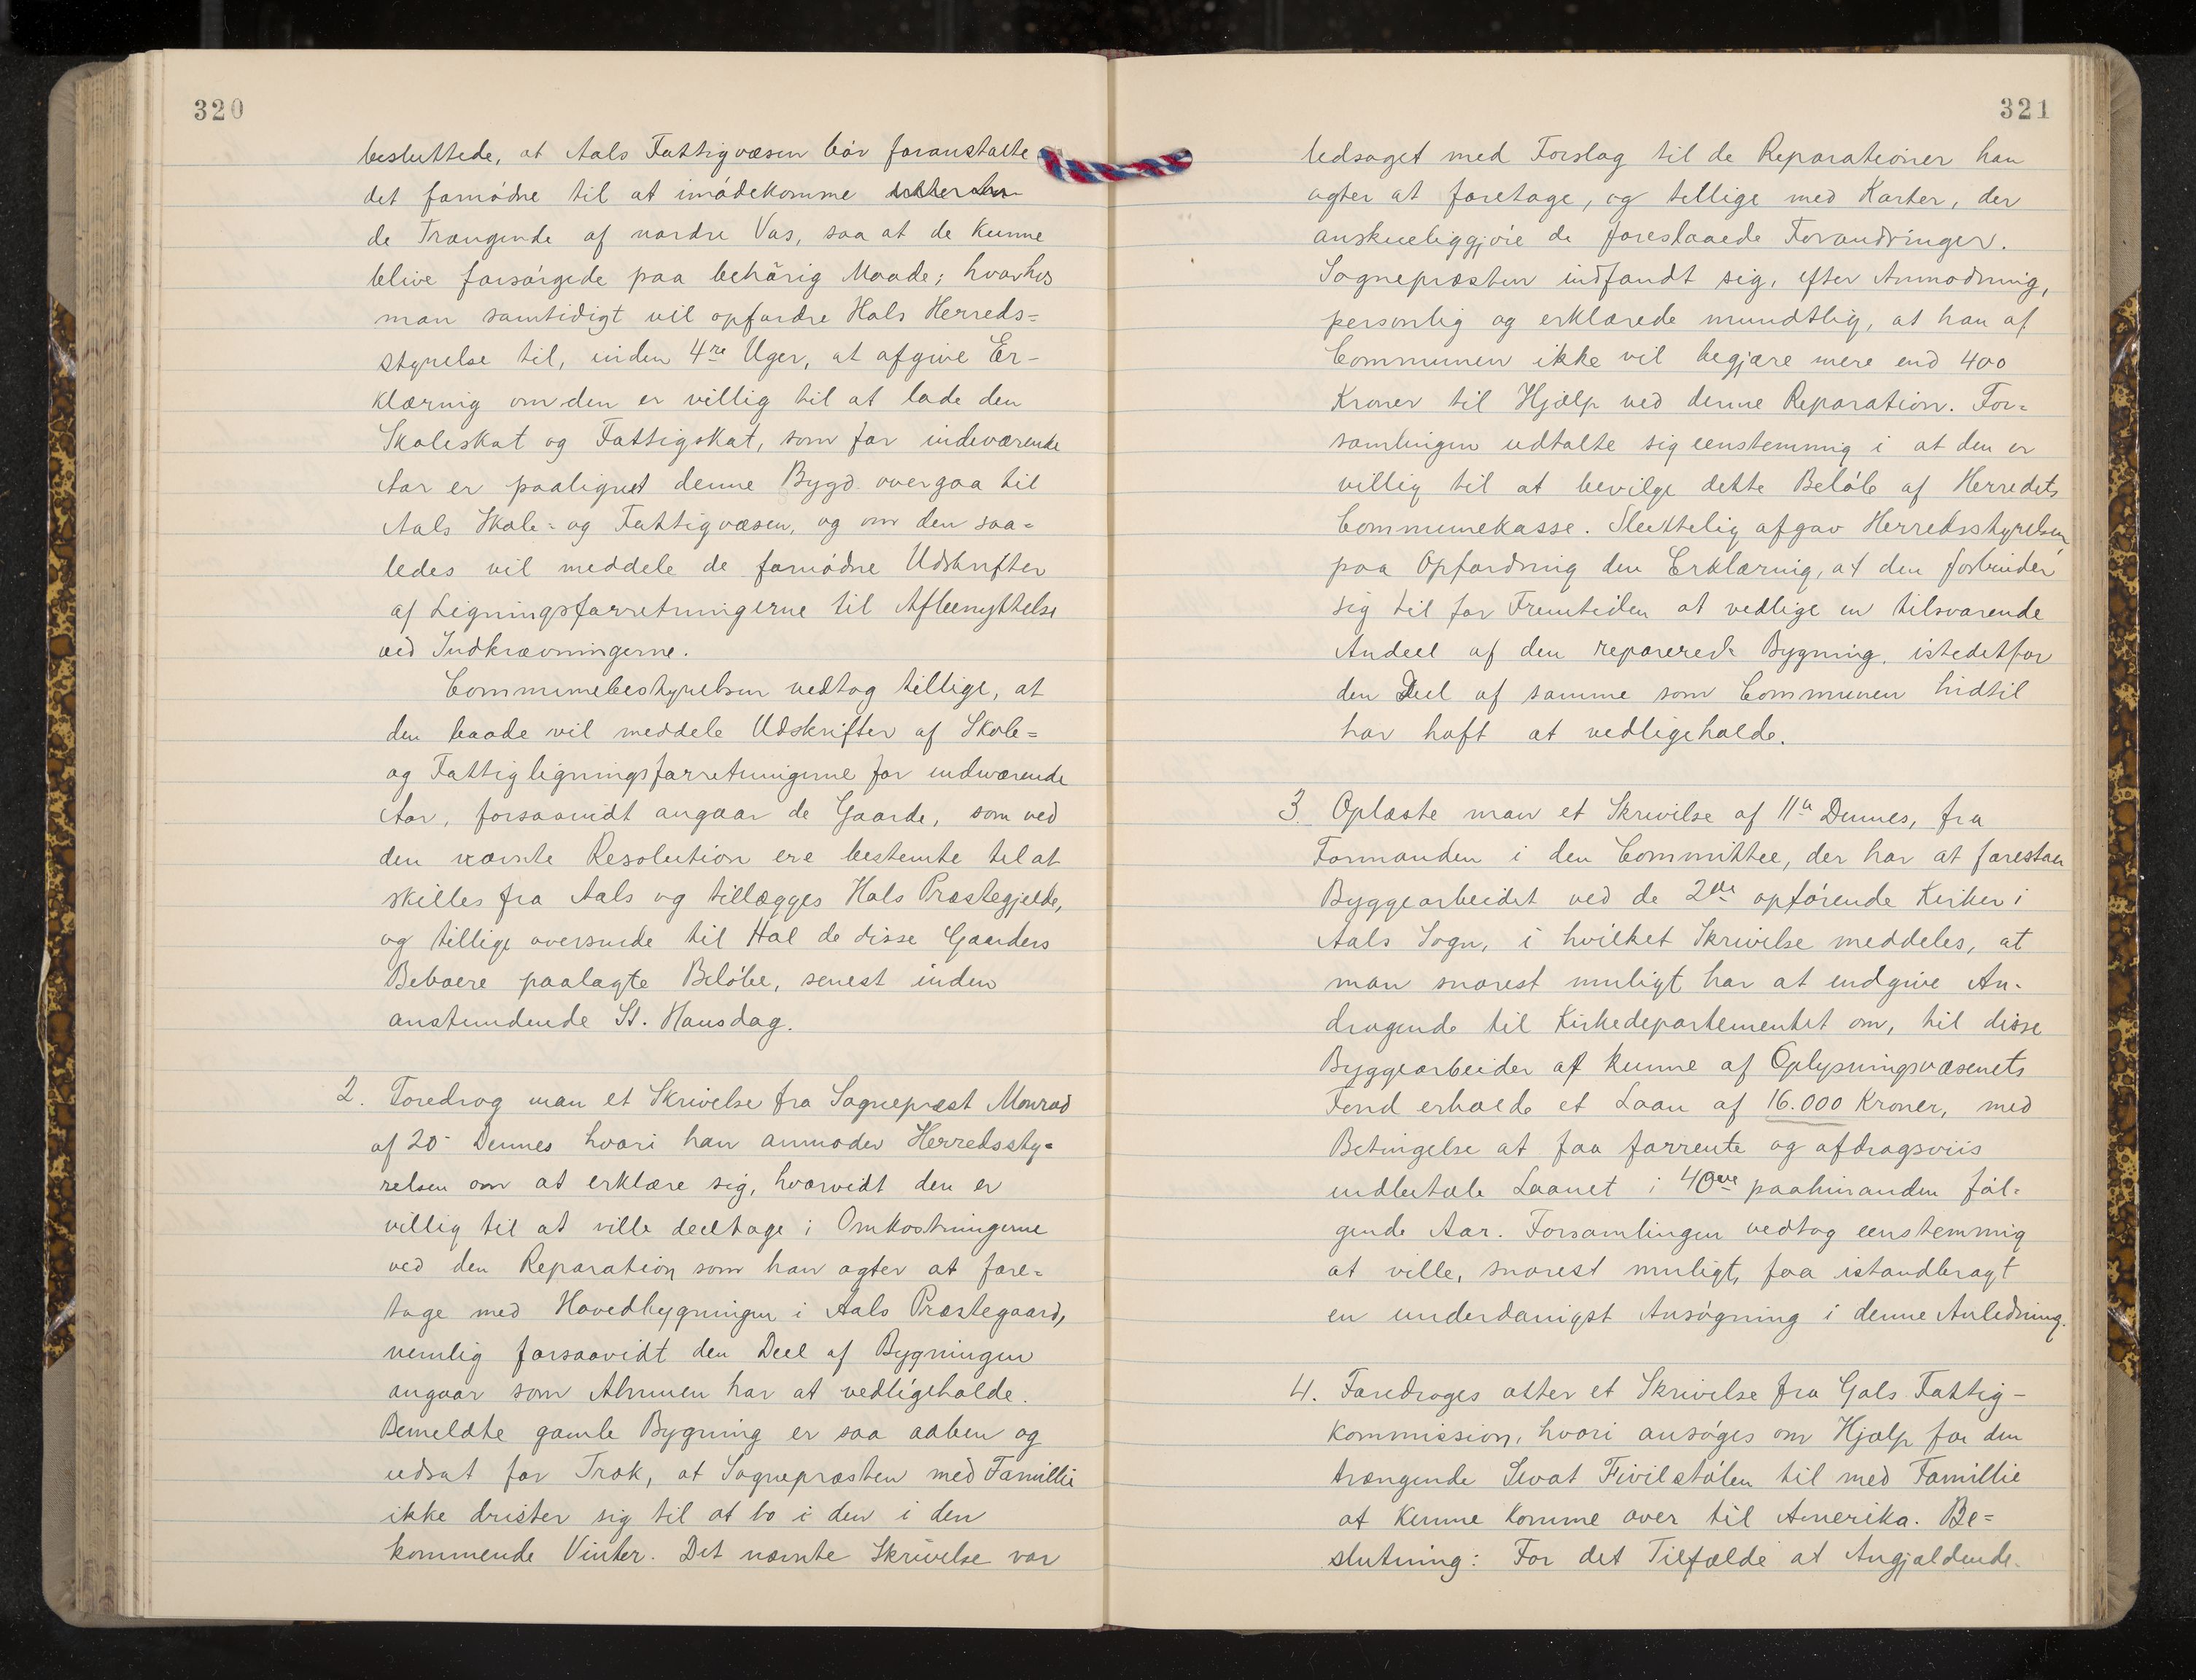 320
besluttede, at Aals Fattigvæsen bör foranstalte
det fornödne til at imödekomme
de Trængende af nordre Vas, saa at de kunne
blive forsörgede paa behörig Maade; hvorhos
man samtidigt vil opfordre Hols Herreds=
styrelse til, inden 4re Uger, at afgive Er-
klæring om den er villig til at lade den
Skoleskat og Fattigskat, som for indeværende
Aar er paalignet denne Bygd overgaa til
Aals Skole= og Fattigvæsen, og om den saa=
ledes vil meddele de fornödne Udskrifter
af Ligningsforretningerne til Afbenyttelse
ved Indkrævningerne.
Communebestyrelsen vedtog tillige, at
den baade vil meddele Udskrifter af Skole=
og Fattigligningsforretningerne for indeværende
Aar, forsaavidt angaar de Gaarde, som ved
den nævnte Resolution ere bestemte til at
skilles fra Aals og tillægges Hols Præstegjelde,
og tillige oversende til Hol de disse Gaarders
Beboere paalagte Belöbe, senest inden
anstundende St. Hansdag.
2. Foredrog man et Skrivelse fra Sognepræst Monrad
af 20 Dennes hvori han anmoder Herredssty=
relsen om at erklære sig, hvorvidt den er
villig til at ville deeltage i Omkostningerne
ved den Reparation som han agter at fore=
tage med Hovedbygningen i Aals Præstegaard,
nemlig forsaavidt den Deel af Bygningen
angaar som Almuen har at vedligeholde.
Bemeldte gamle Bygning er saa aaben og
udsat for Træk, at Sognepræsten med Famillie
ikke drister sig til at bo i den i den
kommende Vinter. Det nævnte Skrivelse var
321
ledsaget med Forslag til de Reparationer han
agter at foretage, og tillige med Karter, der
anskueliggjöre de foreslaaede Forandringer.
Sognepræsten indfandt sig, efter Anmodning,
personlig og erklærede mundtlig, at han af
Communen ikke vil begjære mere end 400
Kroner til Hjælp ved denne Reparation. For=
samlingen udtalte sig eenstemmig i at den er
villig til at bevilge dette Belöb af Herredets
Communekasse. Sluttelig afgav Herredsstyrelsen,
paa Opfordning den Erklæring, at den forbinder
sig til for Fremtiden at vedlige en tilsvarende
Andeel af den reparerede Bygning, istedetfor
den Deel af samme som Communen hidtil
har haft at vedligeholde.
3. Oplæste man et Skrivelse af 11te Dennes, fra
Formanden i den Committee, der har at forestaa
Byggearbeidet ved de 2de opförende Kirker i
Aals Sogn, i hvilket Skrivelse meddeles, at
man snarest muligt har at indgive An-
dragende til Kirkedepartementet om, til disse
Byggearbeider at kunne af Oplysningsvæsenets
Fond erholde et Laan af 16.000 Kroner, med
Betingelse at faa forrente og afdragsviis
indbetale Laanet i 40eve paahinanden föl=
gende Aar. Forsamlingen vedtog eenstemmig
at ville, snarest muligt, faa istandbragt
en underdanigst Ansögning i denne Anledning.
4. Foredroges atter et Skrivelse fra Gols Fattig-
kommission, hvori ansöges om Hjælp for den
trængende Sivat Fivilstölen til med Famillie
at kunne komme over til Amerika. Be=
slutning: For det Tilfælde at Angjældende